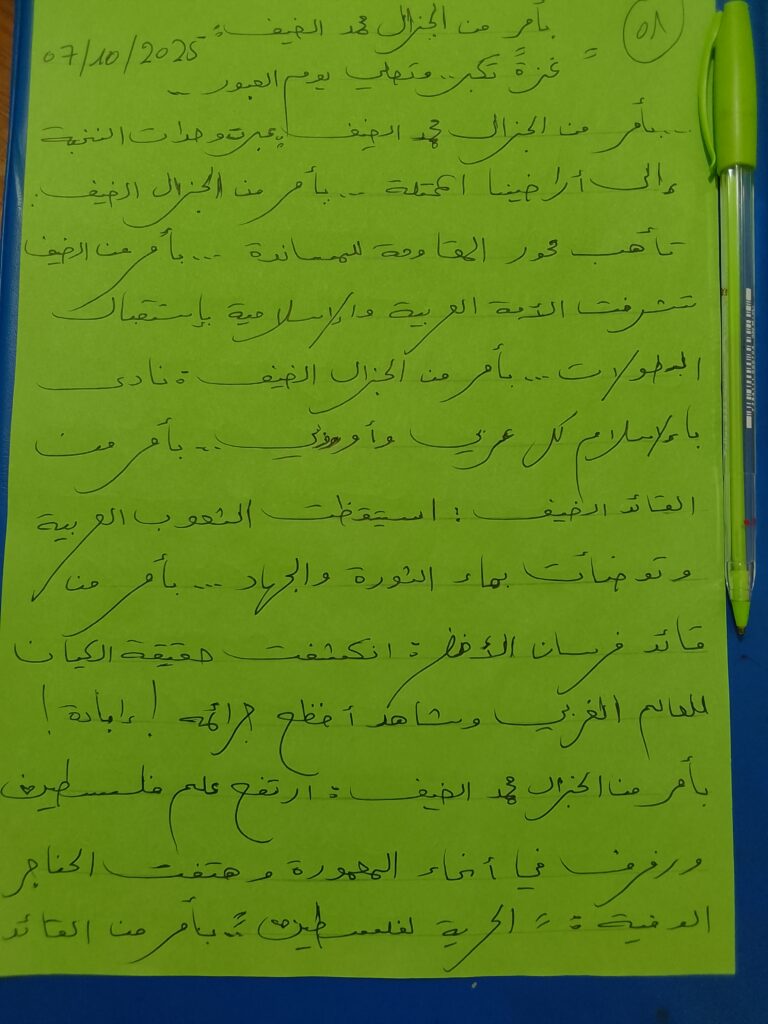 08
بأمر من الجنرال محمد الضيف:
07/10/2025
" غزة تكبر.. وتصلي يوم العبور..
...بأمر من الجنرال محمد الضيف يعبرت وحدات النخبة
إلى أراضينا المحتلة ... بأمر من الجنرال الضيف:
تأهب محور المقاومة للمساندة ... بأمر من الضيف
تشرفت الأمة العربية والإسلامية بإستقبال
البطولات ... بأمر من الجنرال الضيف: نادى
بالإسلام كل عربي وأوروبي... بأمر من
القائد الضيف: استيقظت الشعوب العربية
وتوضأت بماء الثورة والجهاد ... بأمر من
قائد فرسان الأخضر: انكشفت حقيقة الكيان
للعالم الغربي وشاهد أفظع جرائمه ! إبادة !
بأمر من الجنرال محمد الضيف: ارتفع علم فلسطين
ورفرف في أنحاء المعمورة وهتفت الحناجر
الوفية: " الحرية لفلسطين".. بأمر من القائد